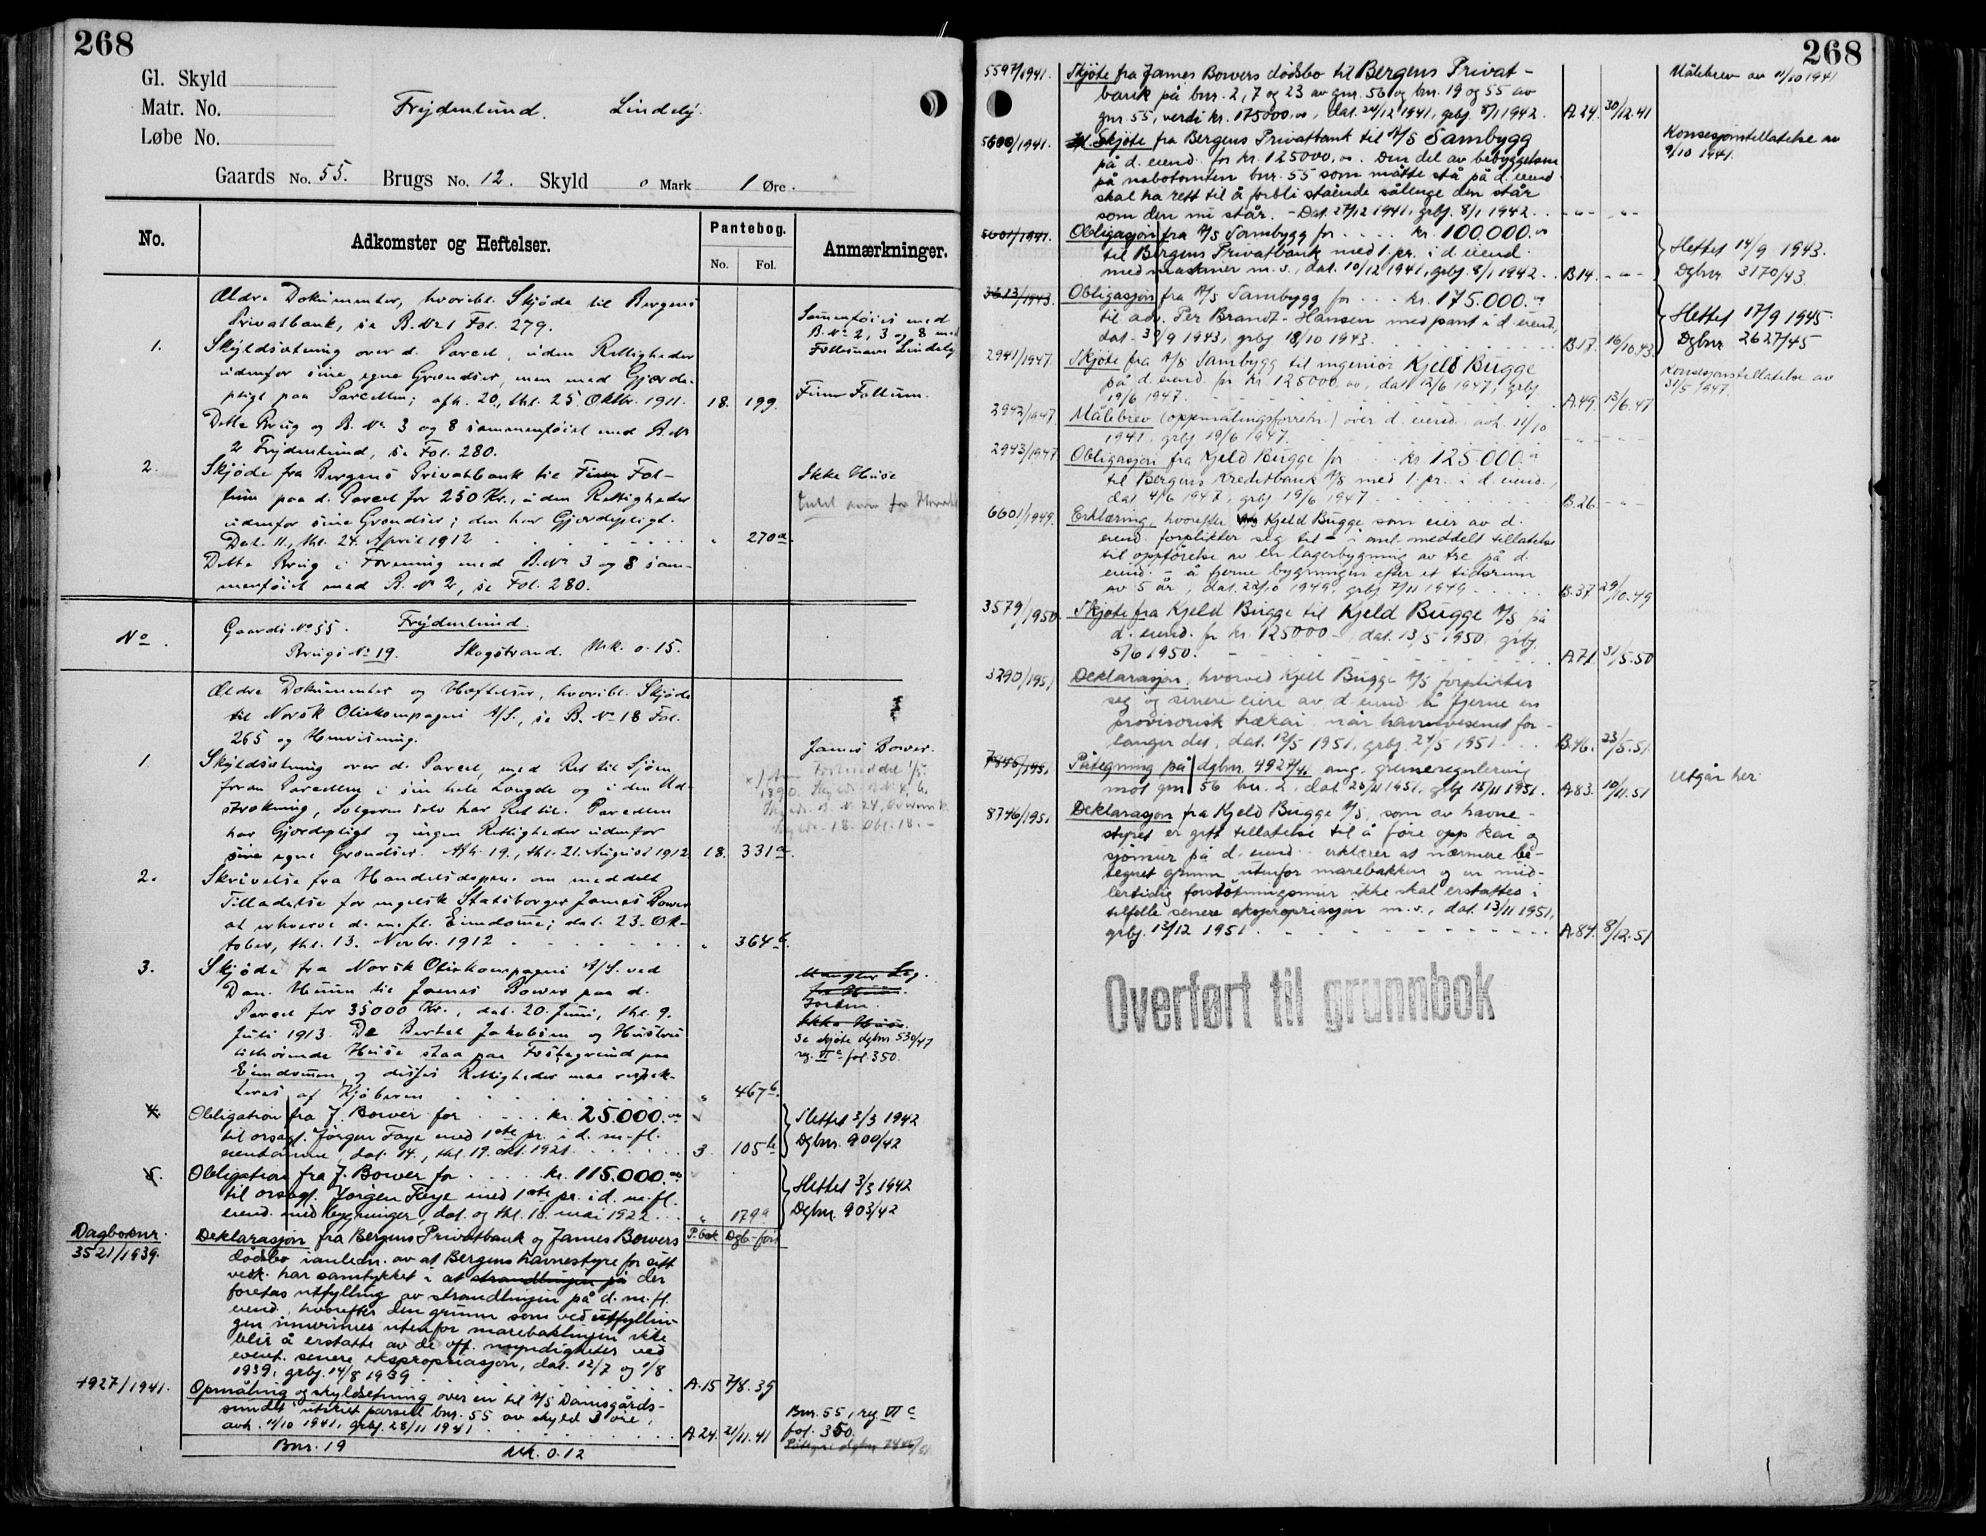 268
Gl. Skyld
Matr. No.
Løbe No.
Frydenlund. Lindely.
Gaards No. 55. Brugs No. 12. Skyld 0 Mark 1 Øre.
No. Adkomster og Heftelser. Pantebog. Anmærkninger.
No. Fol.
Ældre Dokumenter, hvoribl. Skjøde til Bergens
Privatbank, se B. No 1 Fol. 279.
Sammenføiet med
B. No 2, 3 og 8 med
1. Skyldsætning over d. Parcel, uden Rettigheder
udenfor sine egne Grændser, men med Gjerde-
pligt paa Parcellen; afh. 20., thl. 25. Oktbr. 1911. 18. 199.
Dette Brug og B. No 3 og 8 sammenføiet med B. No
2 Frydenlund, se Fol. 280.
2. Skjøde fra Bergens Privatbank til Finn Fol-
lum paa d. Parcel for 250 Kr., uden Rettigheder
udenfor sine Grændser; den har Gjerdepligt.
Dat. 11., thl. 24. April 1912 " 270a.
Ikke Huse
Dette Brug i Forening med B. No 3 og 8 sam-
menføiet med B. No 2, se Fol. 280.
No. Gaards No 55. Frydenlund.
Brugs No 19. Skogstrand. Mk. 0.15.
Ældre Dokumenter og Hæftelser, hvoribl. Skjøde
til Norsk Oliekompagni A/S., se B. No 18 Fol.
265 og Henvisning.
James Bower.
1. Skyldsætning over d. Parcel, med Ret til Sjøen
foran Parcellen i sin hele Længde og i den Ud-
strækning, Sælgeren selv har Ret til. Parcellen
har Gjerdepligt og ingen Rettigheder udenfor
sine egne Grændser. Afh. 19., thl. 21. August 1912 18. 331a.
2. Skrivelse fra Handelsdepen. om meddelt
Tilladelse for engelsk Statsborger James Bower
at erhverve d. m. fl. Eiendomme; dat. 23. Ok-
tober, thl. 13. Novbr. 1912 " 364b.
3. Skjøde fra Norsk Oliekompagni A/S. ved
Dan. Huun til James Bower paa d.
Parcel for 35000 Kr., dat. 20. Juni, thl. 9.
Juli 1913. De Bertel Jakobsen og Hustru
tilhørende Huse staa paa Festegrund paa
Eiendommen og disses Rettigheder maa respek-
teres af Kjøberen " 467b.
Ikke Huse.
Se skjøte dgbnr. 530/47
reg. VI c fol. 350.
4. Obligation fra J. Bower for kr. 25.000.00
til orsagf. Jørgen Faye med 1ste pr. i d. m. fl.
eiendomme, dat. 14., thl. 19. okt. 1921 3. 105b
Slettet 3/3 1942
Dgbnr. 900/42
5. Obligation fra J. Bower for kr. 115.000.00
til orsagf. Jørgen Faye med 1ste pr. i d. m. fl.
eiend. med bygninger, dat. og thl. 18. mai 1922 " 179a
Slettet 3/3 1942
Dgbnr. 903/42
P. bok Dgb-ført
Dagboknr.
3521/1939. Deklarasjon fra Bergens Privatbank og James Bowers
dødsbo i anledn. av at Bergens havnestyre for sitt
vedk. har samtykket i at strandlinjen på der
foretas utfylling av strandlinjen på d. m. fl.
eiend., hvorefter den grunn som ved utfyllin-
gen innvinnes utenfor marebaklinjen ikke
blir å erstatte av de off. myndigheter ved
event. senere ekspropriasjon, dat. 12/7 og 1/8
1939, grbj. 14/8 1939 A.15 7/8.39
4927/1941. Opmåling og skyldsetning over en til A/S Damsgårds-
sundet utskilt parsell bnr. 55 av skyld 3 øre,
avh. 11/10 1941, grbj. 28/11 1941 A.24. 21/11.41
Bnr. 55, reg. VI c
fol. 350.
Bnr. 19 Mk. 0.12
268
5597/1941. Skjøte fra James Bowers dødsbo til Bergens Privat-
bank på bnr. 2, 7 og 23 av gnr. 56 og bnr. 19 og 55 av
gnr. 55, verdi kr. 175000,00, dat. 24/12 1941, grbj. 8/1 1942. A.24. 30/12.41
Målebrev av 11/10 1941
5600/1941. Skjøte fra Bergens Privatbank til A/S Sambygg
på d. eiend. for kr. 125000,00. Den del av bebyggelsen
på nabotomten bnr. 55 som måtte stå på d. eiend.
skal ha rett til å forbli stående sålenge den står
som den nu står. - Dat. 27/12 1941, grbj. 8/1 1942. - " - - " -
Konsesjonstillatelse av
9/10 1941.
5601/1941. Obligasjon fra A/S Sambygg for kr. 100.000.00
til Bergens Privatbank med 1. pr. i d. eiend.
med maskiner m. v., dat. 10/12 1941, grbj. 8/1 1942. B.14. - " -
Slettet 14/9 1943.
Dgbnr. 3170/43.
3613/1943. Obligasjon fra A/S Sambygg for kr. 175.000.00
til adv. Per Brandt-Hansen med pant i d. eiend.,
dat. 30/9 1943, grbj. 18/10 1943. B.17. 16/10.43
Slettet 17/9 1945
Dgbnr. 2627/45
2941/1947. Skjøte fra A/S Sambygg til ingeniør Kjeld Bugge
på d. eiend. for kr. 125000,00, dat. 12/6 1947, grbj.
19/6 1947. A.49. 13/6.47
Konsesjonstillatelse av
31/5 1947.
2942/1947 Målebrev (oppmålingsforretn.) over d. eiend. avh. 11/10
1941, grbj. 19/6 1947.
2943/1947 Obligasjon fra Kjeld Bugge for kr. 125.000.00
til Bergens Kreditbank A/S med 1. pr. i d. eiend.,
dat. 4/6 1947, grbj. 19/6 1947 B.26. - " -
6601/1949. Erklæring, hvorefter Kjeld Bugge som eier av d.
eiend. forplikter seg til - i anl. meddelt tillatelse
til oppførelse av en lagerbygning av tre på d.
eiend. - å fjerne bygningen efter et tidsrum
av 5 år, dat. 22/10 1949, grbj. 7/11 1949. B.37. 29/10.49
3579/1950. Skjøte fra Kjeld Bugge til Kjeld Bugge A/S på
d. eiend. for kr. 125000.-, dat. 13/5 1950, grbj.
5/6 1950. A.71. 31/5.50
3290/1951 Deklarasjon, hvorved Kjell Bugge A/S forplikter
seg og senere eiere av d. eiend. å fjerne en
provisorisk trekai når havnevesenet for-
langer det, dat. 12/5 1951, grbj. 24/5 1951. B.46. 23/5.51.
7846/1951 Påtegning på dgbnr. 4927/41 ang. grenseregulering
mot gnr. 56 bnr. 2, dat. 20/11 1951, grbj. 15/11 1951. A.83. 10/11.51
Utgår her.
8346/1951 Deklarasjon fra Kjeld Bugge A/S, som av havne-
styret er gitt tillatelse til å føre opp kai og
sjømur på d. eiend. erklærer at nærmere be-
tegnet grunn utenfor marebakken og en mid-
lertidig forstøtningsmur ikke skal erstattes i
tilfelle senere ekspropriasjon m. v., dat. 13/11 1951,
grbj. 13/12 1951. A.84. 8/12.51
Overført til grunnbok